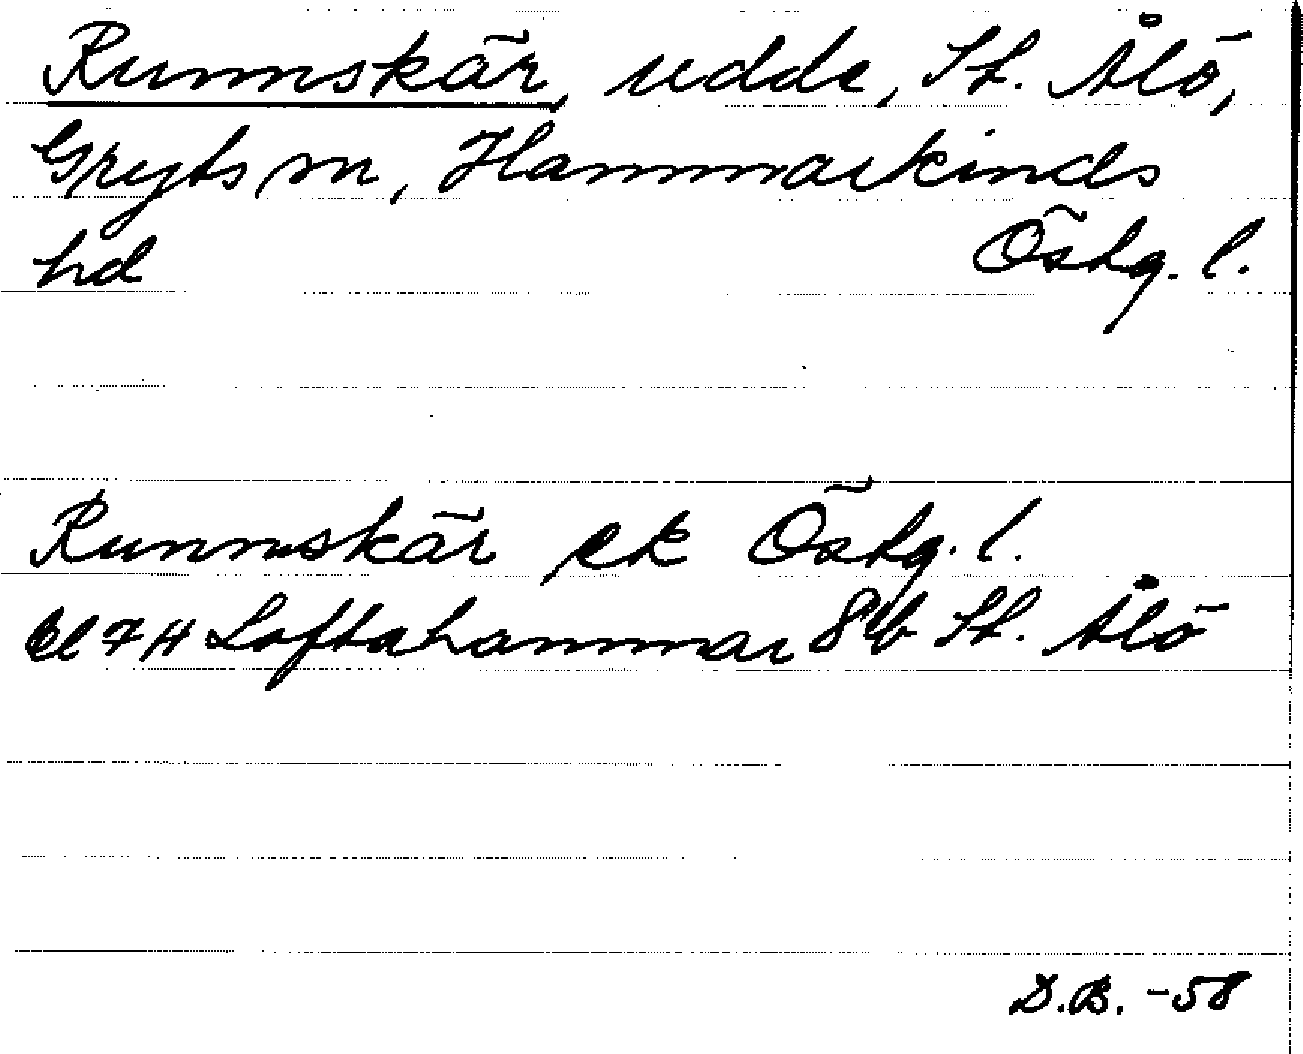 Runnskär, udde, St. Ålö,
Gryts sn, Hammarkinds
hd Östg. l.
Runnskär ek Östg. l.
bl 7H Loftahammar 8b St. Ålö
D.B. -58